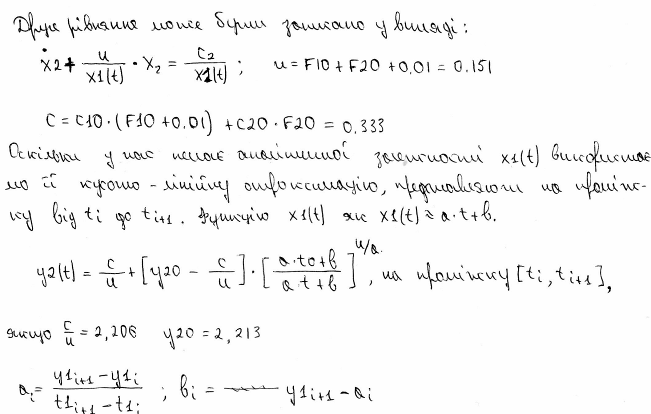 Друге рівняння може бути записано у вигляді:
ẋ2 + u/x1(t) · x₂ = c₂/x1(t) ; u = F10 + F20 + 0,01 = 0.151
C = C10 · (F10 + 0,01) + C20 · F20 = 0,333
Оскільки у нас немає аналітичної залежності x1(t) використає-
мо її кусочно - лінійну апроксимацію, представляючи на проміж-
ку від ti до ti+1. Функцію x1(t) як x1(t) ≈ a·t+b.
y2(t) = c/u + [y20 - c/u] · [(a·t0+b)/(a·t+b)]^(u/a), на проміжку [ti, ti+1],
якщо c/u = 2,206 y20 = 2,213
ai = (y1i+1 - y1i)/(t1i+1 - t1i) ; bi = y1i+1 - ai